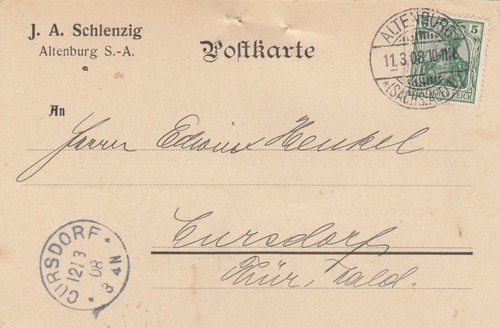 J. A. Schlenzig
Altenburg S.-A.
Postkarte
ALTENBURG
11.3.08.10-11.V.
*(SACHS.ALT.)
5
An
Herrn Edwin Henkel
Cursdorf
Thür. Wald.
CURSDORF
12 3
08
3-4N